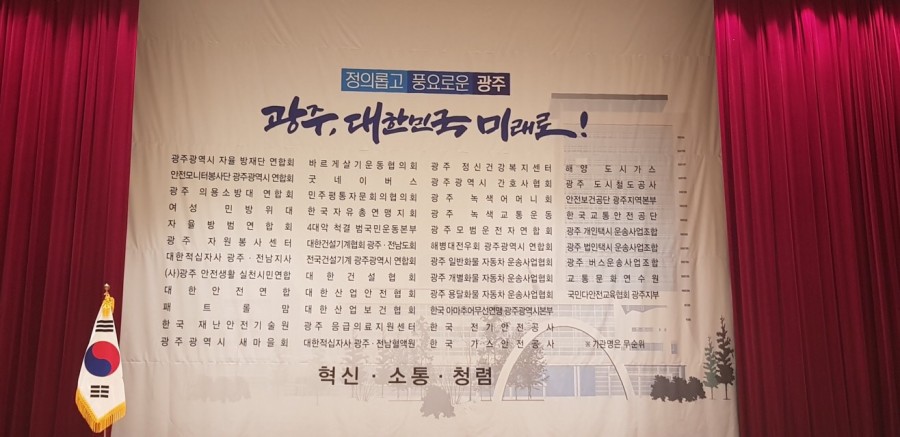 정의롭고 풍요로운 광주
광주, 대한민국 미래로!
광주광역시 자율 방재단 연합회 바르게살기운동협의회 광주 정신건강복지센터 해양 도시가스
안전모니터봉사단 광주광역시 연합회 굿네이버스 광주광역시 간호사협회 광주 도시철도공사
광주 의용소방대 연합회 민주평통자문회의협의회 광주 녹색어머니회 안전보건공단 광주지역본부
여성 민방위대 한국자유총연맹지회 광주 녹색교통운동 한국교통안전공단
자율방범연합회 4대악 척결 범국민운동본부 광주모범운전자연합회 광주 개인택시 운송사업조합
광주 자원봉사센터 대한건설기계협회 광주·전남도회 해병대전우회 광주광역시 연합회 광주 법인택시 운송사업조합
대한적십자사 광주·전남지사 전국건설기계 광주광역시 연합회 광주 일반화물 자동차 운송사업협회 광주 버스운송사업조합
(사)광주 안전생활 실천시민연합 대한건설협회 광주 개별화물 자동차 운송사업협회 교통문화연수원
대한안전연합 대한산업안전협회 광주 용달화물 자동차 운송사업협회 국민다안전교육협회 광주지부
패트롤맘 대한산업보건협회 한국 아마추어무선연맹 광주광역시본부
한국 재난안전기술원 광주 응급의료지원센터 한국 전기안전공사
광주광역시 새마을회 대한적십자사 광주·전남혈액원 한국 가스안전공사 ※기관명은 무순위
혁신·소통·청렴